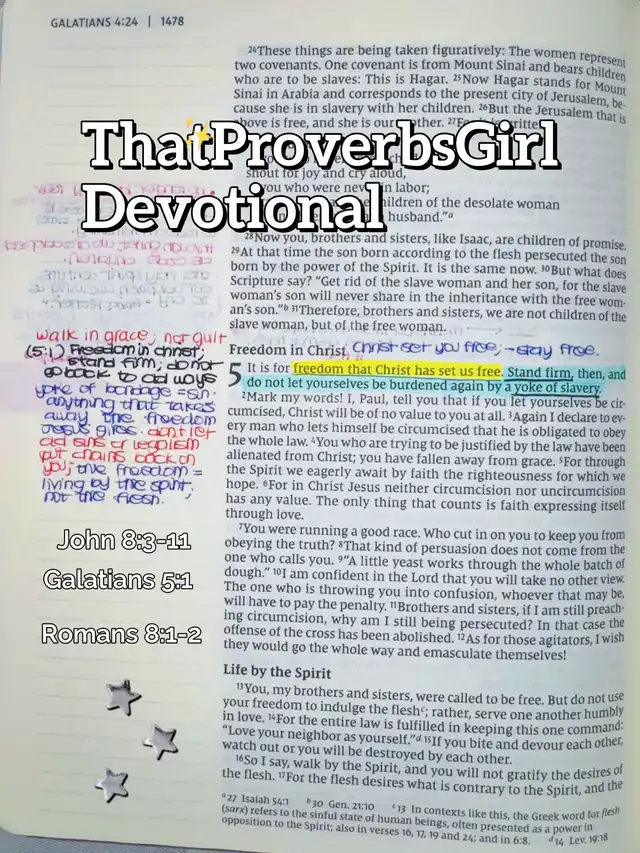 GALATIANS 4:24 | 1478
24These things are being taken figuratively: The women represent
two covenants. One covenant is from Mount Sinai and bears children
who are to be slaves: This is Hagar. 25Now Hagar stands for Mount
Sinai in Arabia and corresponds to the present city of Jerusalem, be-
cause she is in slavery with her children. 26But the Jerusalem that is
above is free, and she is our mother. 27For
ThatProverbsGirl
Devotional
shout for joy and cry aloud,
you who were never in labor;
children of the desolate woman
husband."a
28Now you, brothers and sisters, like Isaac, are children of promise.
29At that time the son born according to the flesh persecuted the son
born by the power of the Spirit. It is the same now. 30But what does
Scripture say? "Get rid of the slave woman and her son, for the slave
woman's son will never share in the inheritance with the free wom-
an's son."b 31Therefore, brothers and sisters, we are not children of the
slave woman, but of the free woman.
Freedom in Christ Christ set you free, - stay free.
5 It is for freedom that Christ has set us free. Stand firm, then, and
do not let yourselves be burdened again by a yoke of slavery.
2Mark my words! I, Paul, tell you that if you let yourselves be cir-
cumcised, Christ will be of no value to you at all. 3Again I declare to ev-
ery man who lets himself be circumcised that he is obligated to obey
the whole law. 4You who are trying to be justified by the law have been
alienated from Christ; you have fallen away from grace. 5For through
the Spirit we eagerly await by faith the righteousness for which we
hope. 6For in Christ Jesus neither circumcision nor uncircumcision
has any value. The only thing that counts is faith expressing itself
through love.
7You were running a good race. Who cut in on you to keep you from
obeying the truth? 8That kind of persuasion does not come from the
one who calls you. 9"A little yeast works through the whole batch of
dough." 10I am confident in the Lord that you will take no other view.
The one who is throwing you into confusion, whoever that may be,
will have to pay the penalty. 11Brothers and sisters, if I am still preach-
ing circumcision, why am I still being persecuted? In that case the
offense of the cross has been abolished. 12As for those agitators, I wish
they would go the whole way and emasculate themselves!
Life by the Spirit
13You, my brothers and sisters, were called to be free. But do not use
your freedom to indulge the fleshc; rather, serve one another humbly
in love. 14For the entire law is fulfilled in keeping this one command:
"Love your neighbor as yourself."d 15If you bite and devour each other,
watch out or you will be destroyed by each other.
16So I say, walk by the Spirit, and you will not gratify the desires of
the flesh. 17For the flesh desires what is contrary to the Spirit, and the
a27 Isaiah 54:1 b30 Gen. 21:10 c13 In contexts like this, the Greek word for flesh
(sarx) refers to the sinful state of human beings, often presented as a power in
opposition to the Spirit; also in verses 16, 17, 19 and 24; and in 6:8. d14 Lev. 19:18
walk in grace, not guilt
(5:1) Freedom in christ,
stand firm; do not
go back to old ways
yoke of bondage = sin.
anything that takes
away the freedom
Jesus gives. don't let
old sins or legalism
put chains back on
you; true freedom =
living by the spirit,
not the flesh.
John 8:3-11
Galatians 5:1
Romans 8:1-2